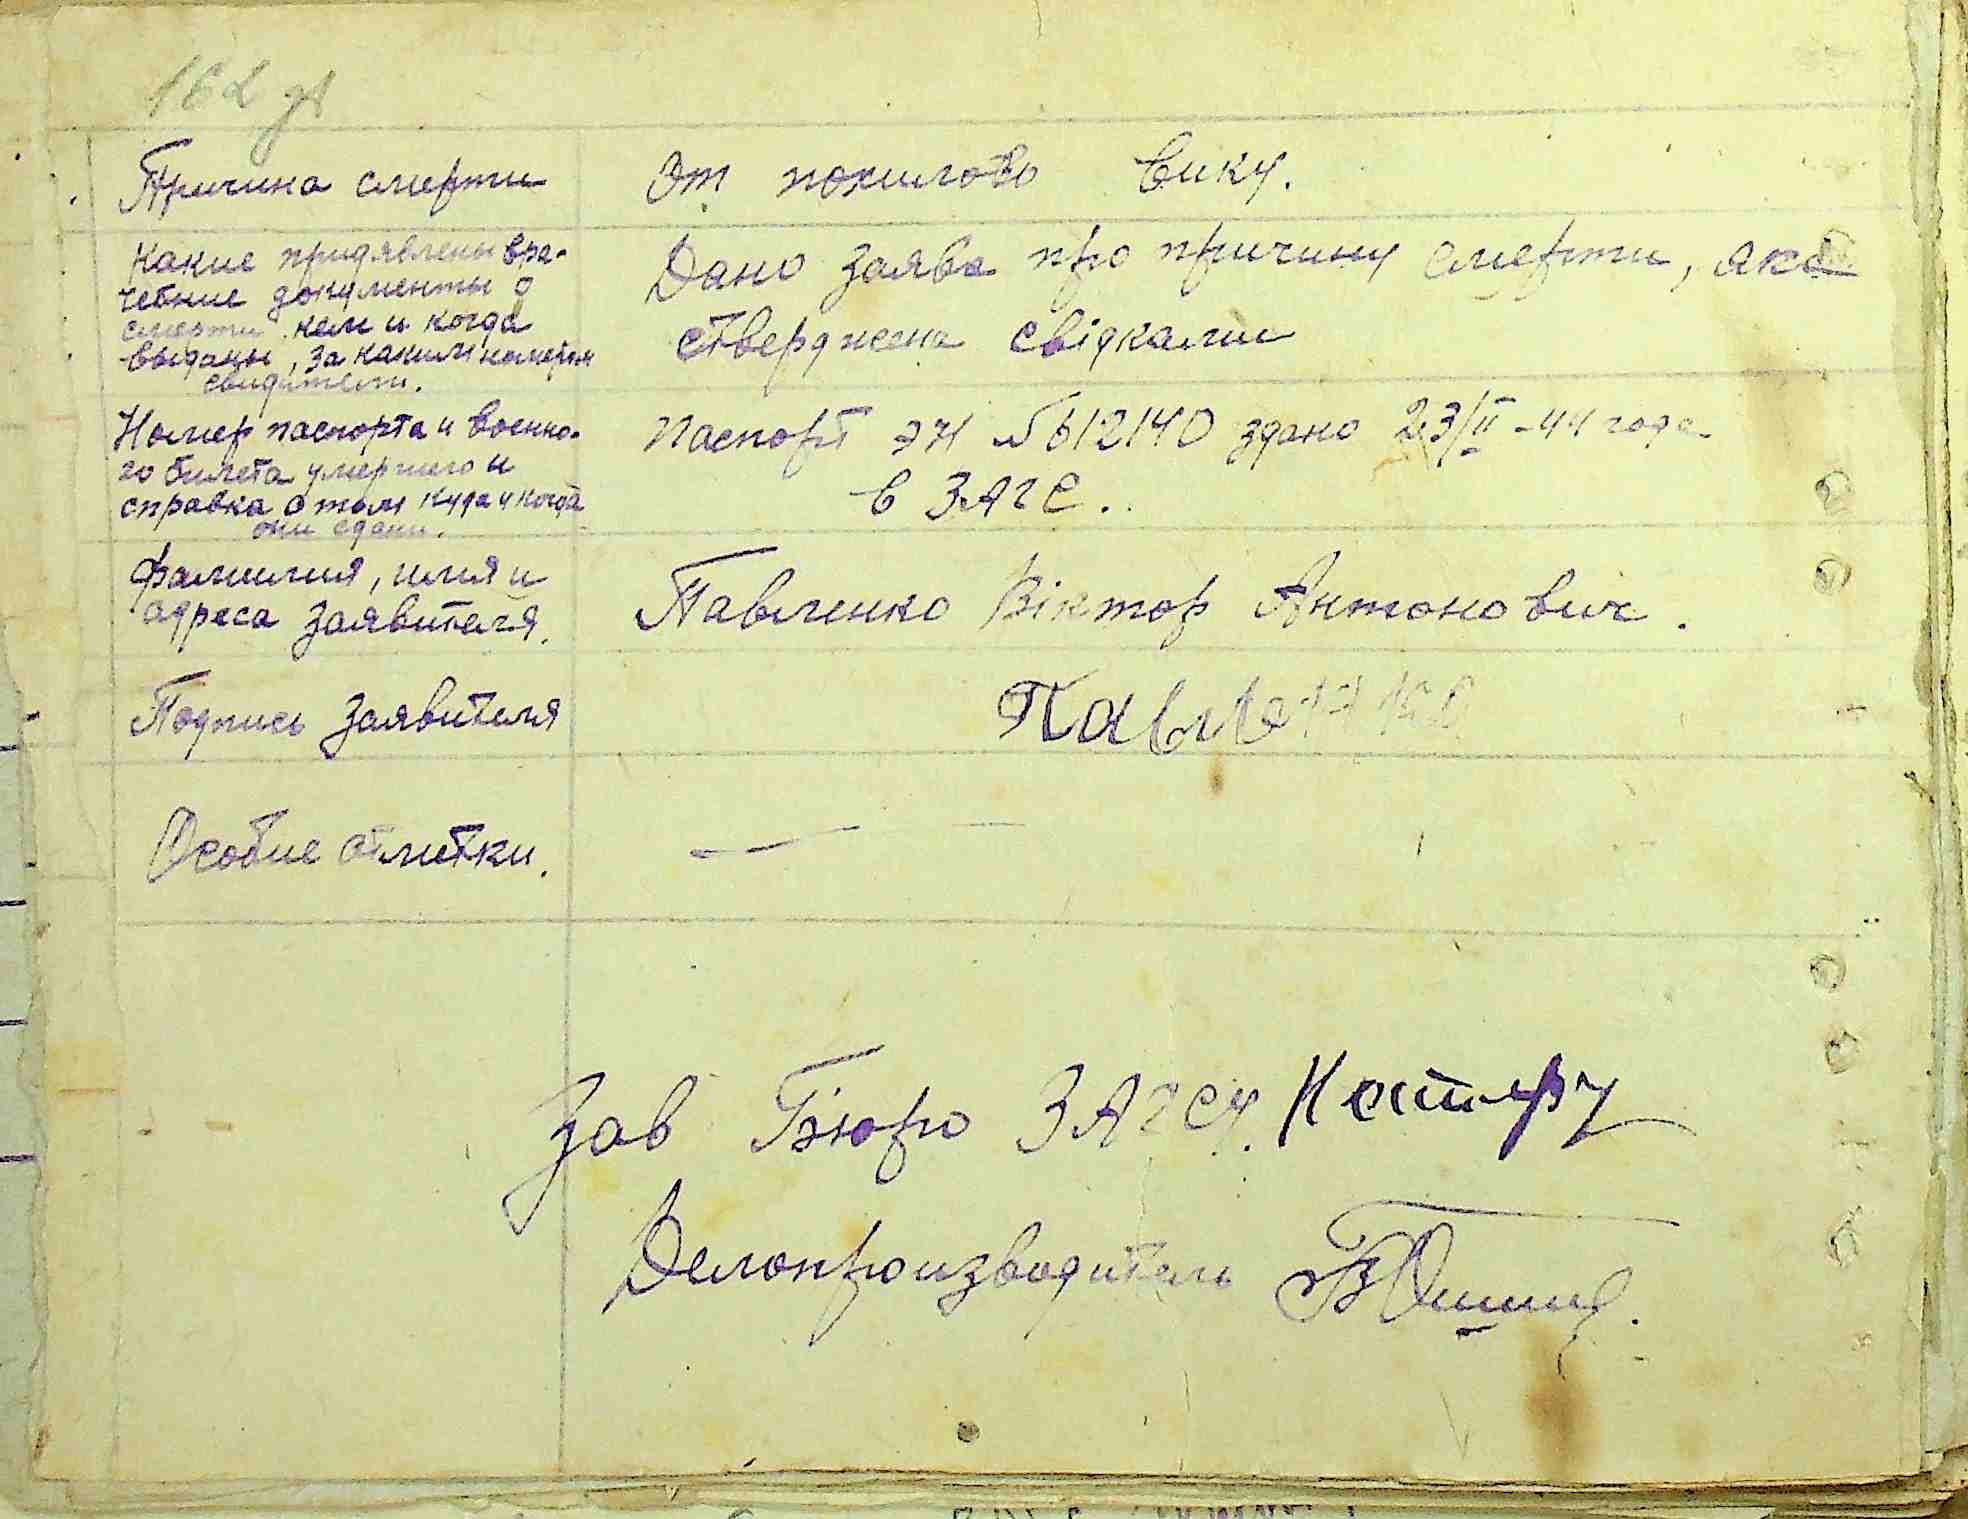 162
Причина смерти
От похилого вику.
Какие придявлены вра-
чебние документы о
смерти кем и когда
выданы, за каким номером
свидители.
Дано заява про причину смерти, яка
стверджена свідками
Номер паспорта и военно-
го билета умершего и
справка о том куда и когда
они сдани.
Паспорт ЭН № 612140 здано 23/II-44 года
в ЗАГС.
Фамилия, имя и
адреса заявителя.
Павленко Віктор Антонович.
Подпись заявителя
Павленко
Особие отметки.
Зав Бюро ЗАГСу.
Делопроизводитель